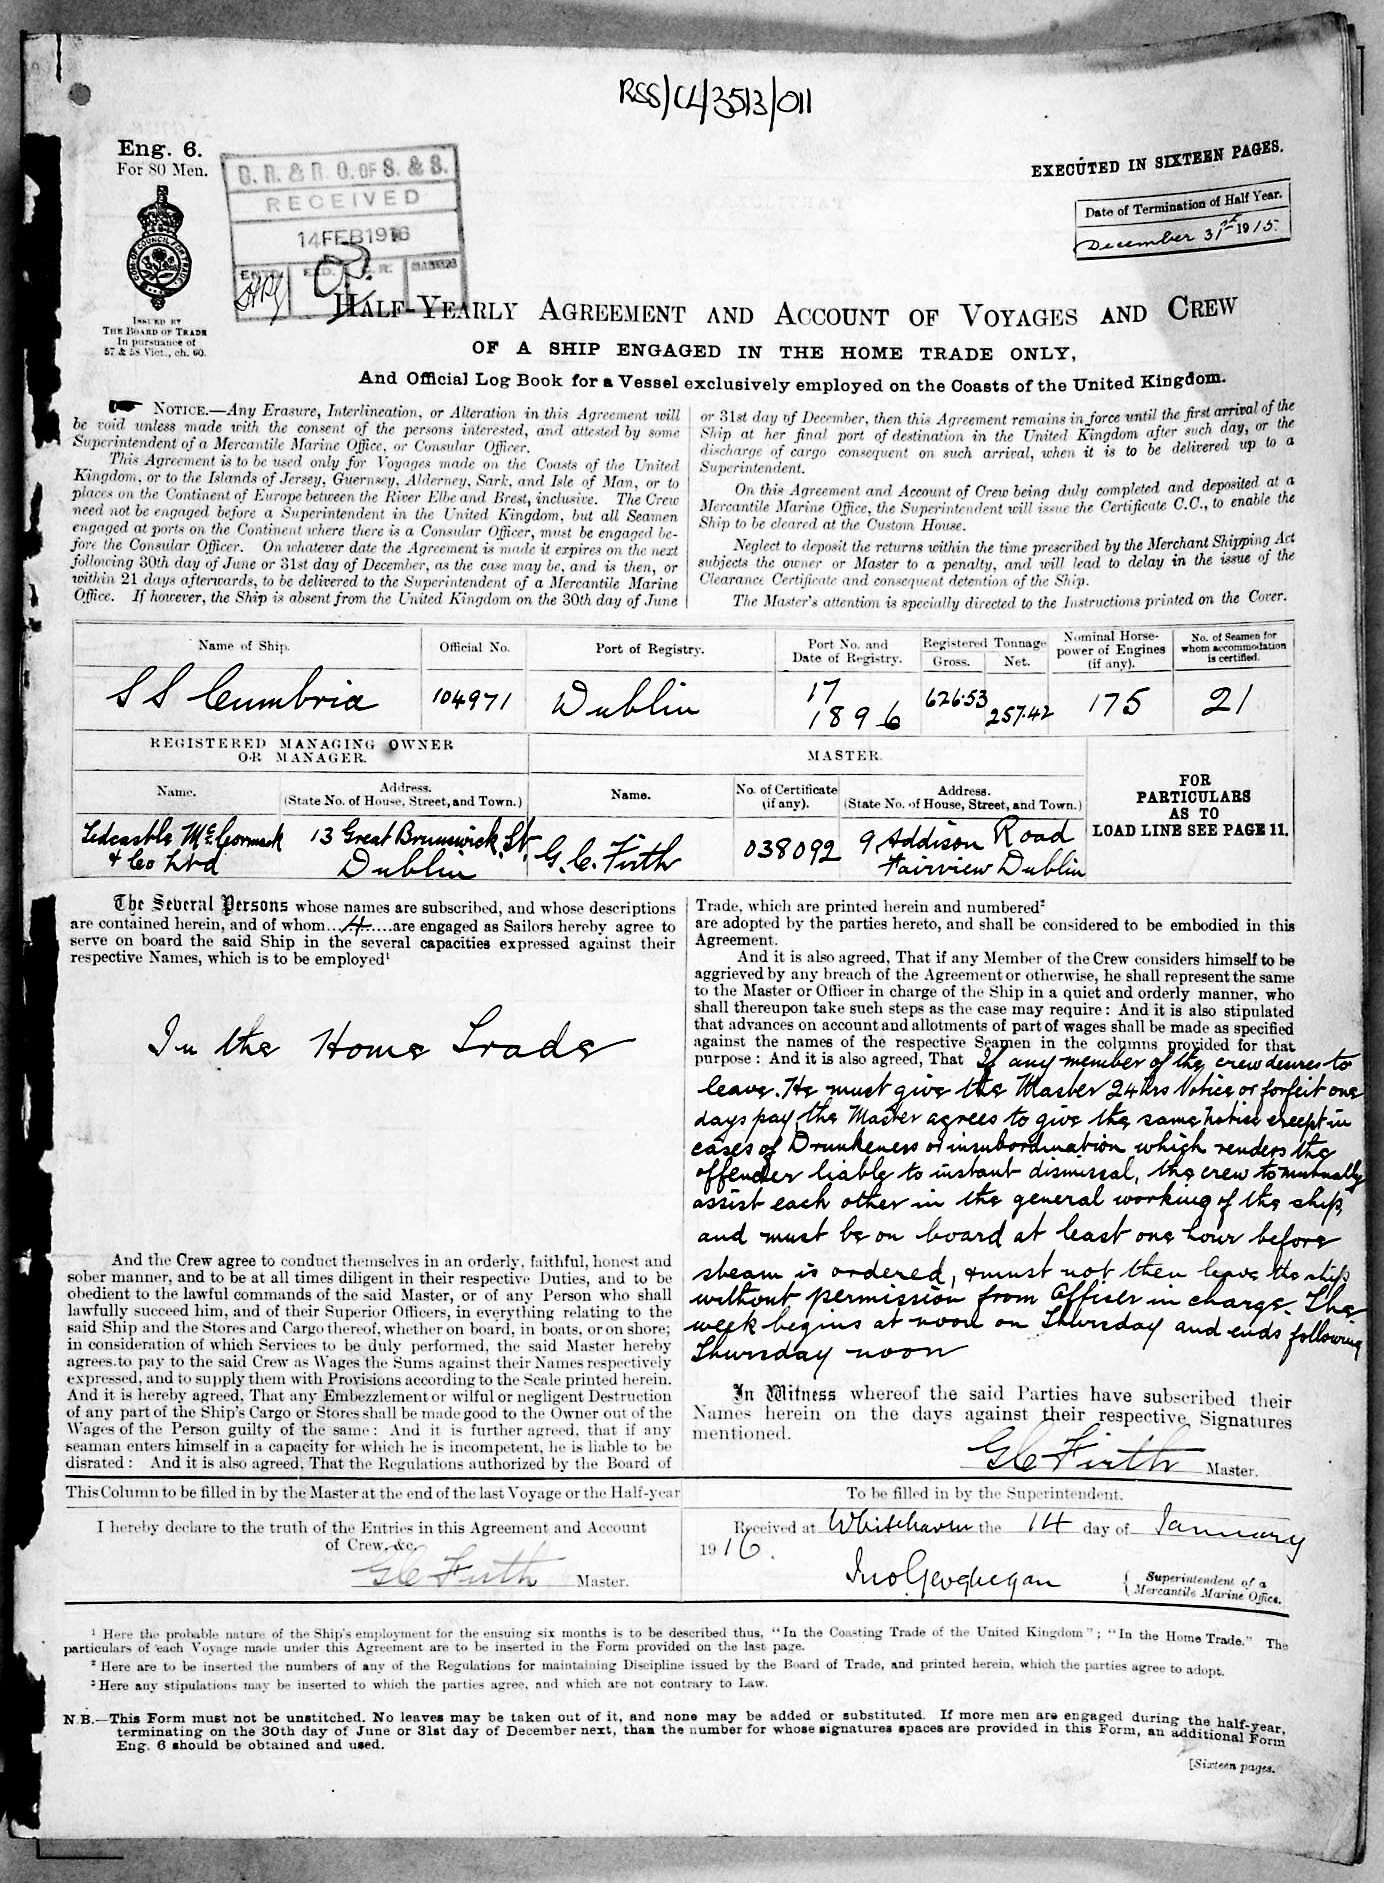 RSS/CL/3513/011
Eng. 6.
For 80 Men.
COM. OF COUNCIL FOR TRADE
ISSUED BY
THE BOARD OF TRADE
In pursuance of
57 & 58 Vict., ch. 60.
D. R. & R. O. OF S. & S.
RECEIVED
14 FEB 1916
EXECUTED IN SIXTEEN PAGES.
Date of Termination of Half Year.
December 31st 1915.
HALF-YEARLY AGREEMENT AND ACCOUNT OF VOYAGES AND CREW
OF A SHIP ENGAGED IN THE HOME TRADE ONLY,
And Official Log Book for a Vessel exclusively employed on the Coasts of the United Kingdom.
NOTICE.—Any Erasure, Interlineation, or Alteration in this Agreement will
be void unless made with the consent of the persons interested, and attested by some
Superintendent of a Mercantile Marine Office, or Consular Officer.
This Agreement is to be used only for Voyages made on the Coasts of the United
Kingdom, or to the Islands of Jersey, Guernsey, Alderney, Sark, and Isle of Man, or to
places on the Continent of Europe between the River Elbe and Brest, inclusive. The Crew
need not be engaged before a Superintendent in the United Kingdom, but all Seamen
engaged at ports on the Continent where there is a Consular Officer, must be engaged be-
fore the Consular Officer. On whatever date the Agreement is made it expires on the next
following 30th day of June or 31st day of December, as the case may be, and is then, or
within 21 days afterwards, to be delivered to the Superintendent of a Mercantile Marine
Office. If however, the Ship is absent from the United Kingdom on the 30th day of June
or 31st day of December, then this Agreement remains in force until the first arrival of the
Ship at her final port of destination in the United Kingdom after such day, or the
discharge of cargo consequent on such arrival, when it is to be delivered up to a
Superintendent.
On this Agreement and Account of Crew being duly completed and deposited at a
Mercantile Marine Office, the Superintendent will issue the Certificate C.C., to enable the
Ship to be cleared at the Custom House.
Neglect to deposit the returns within the time prescribed by the Merchant Shipping Act
subjects the owner or Master to a penalty, and will lead to delay in the issue of the
Clearance Certificate and consequent detention of the Ship.
The Master's attention is specially directed to the Instructions printed on the Cover.
Name of Ship. Official No. Port of Registry. Port No. and Date of Registry. Registered Tonnage Gross. Net. Nominal Horse-power of Engines (if any). No. of Seamen for whom accommodation is certified.
S S Cumbria 104971 Dublin 17 1896 626.53 257.42 175 21
REGISTERED MANAGING OWNER OR MANAGER. MASTER.
Name. Address. (State No. of House, Street, and Town.) Name. No. of Certificate (if any). Address. (State No. of House, Street, and Town.)
FOR PARTICULARS AS TO LOAD LINE SEE PAGE 11.
Tedcastle McCormick & Co Ltd 13 Great Brunswick St. Dublin G. C. Firth 038092 9 Addison Road Fairview Dublin
The Several Persons whose names are subscribed, and whose descriptions
are contained herein, and of whom...4....are engaged as Sailors hereby agree to
serve on board the said Ship in the several capacities expressed against their
respective Names, which is to be employed¹
In the Home Trade
And the Crew agree to conduct themselves in an orderly, faithful, honest and
sober manner, and to be at all times diligent in their respective Duties, and to be
obedient to the lawful commands of the said Master, or of any Person who shall
lawfully succeed him, and of their Superior Officers, in everything relating to the
said Ship and the Stores and Cargo thereof, whether on board, in boats, or on shore;
in consideration of which Services to be duly performed, the said Master hereby
agrees to pay to the said Crew as Wages the Sums against their Names respectively
expressed, and to supply them with Provisions according to the Scale printed herein.
And it is hereby agreed, That any Embezzlement or wilful or negligent Destruction
of any part of the Ship's Cargo or Stores shall be made good to the Owner out of the
Wages of the Person guilty of the same: And it is further agreed, that if any
seaman enters himself in a capacity for which he is incompetent, he is liable to be
disrated: And it is also agreed, That the Regulations authorized by the Board of
Trade, which are printed herein and numbered²
are adopted by the parties hereto, and shall be considered to be embodied in this
Agreement.
And it is also agreed, That if any Member of the Crew considers himself to be
aggrieved by any breach of the Agreement or otherwise, he shall represent the same
to the Master or Officer in charge of the Ship in a quiet and orderly manner, who
shall thereupon take such steps as the case may require: And it is also stipulated
that advances on account and allotments of part of wages shall be made as specified
against the names of the respective Seamen in the columns provided for that
purpose: And it is also agreed, That If any member of the crew desires to
leave. He must give the Master 24 hrs Notice or forfeit one
days pay, the Master agrees to give the same notice except in
cases of Drunkeness or insubordination which renders the
offender liable to instant dismissal, the crew to mutually
assist each other in the general working of the ship,
and must be on board at least one hour before
steam is ordered, & must not then leave the ship
without permission from Officer in charge. The
week begins at noon on Thursday and ends following
Thursday noon
In Witness whereof the said Parties have subscribed their
Names herein on the days against their respective Signatures
mentioned.
G C Firth Master.
This Column to be filled in by the Master at the end of the last Voyage or the Half-year
I hereby declare to the truth of the Entries in this Agreement and Account
of Crew, &c.
G C Firth Master.
To be filled in by the Superintendent.
Received at Whitehaven the 14 day of January
1916.
Jno Geoghegan Superintendent of a Mercantile Marine Office.
¹ Here the probable nature of the Ship's employment for the ensuing six months is to be described thus, "In the Coasting Trade of the United Kingdom"; "In the Home Trade." The
particulars of each Voyage made under this Agreement are to be inserted in the Form provided on the last page.
² Here are to be inserted the numbers of any of the Regulations for maintaining Discipline issued by the Board of Trade, and printed herein, which the parties agree to adopt.
³ Here any stipulations may be inserted to which the parties agree, and which are not contrary to Law.
N.B.—This Form must not be unstitched. No leaves may be taken out of it, and none may be added or substituted. If more men are engaged during the half-year,
terminating on the 30th day of June or 31st day of December next, than the number for whose signatures spaces are provided in this Form, an additional Form
Eng. 6 should be obtained and used.
[Sixteen pages.